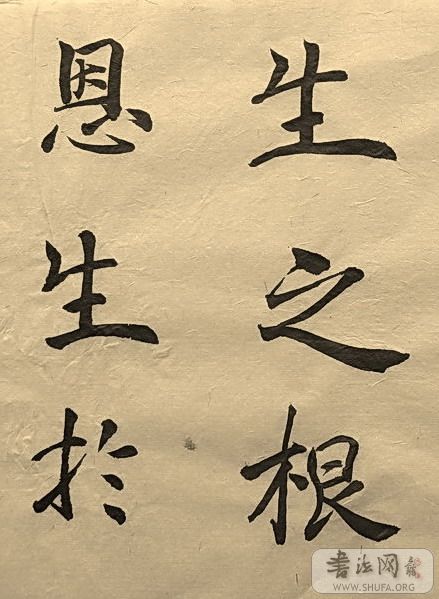 生之根
恩生於
書法网
WWW.SHUFA.ORG